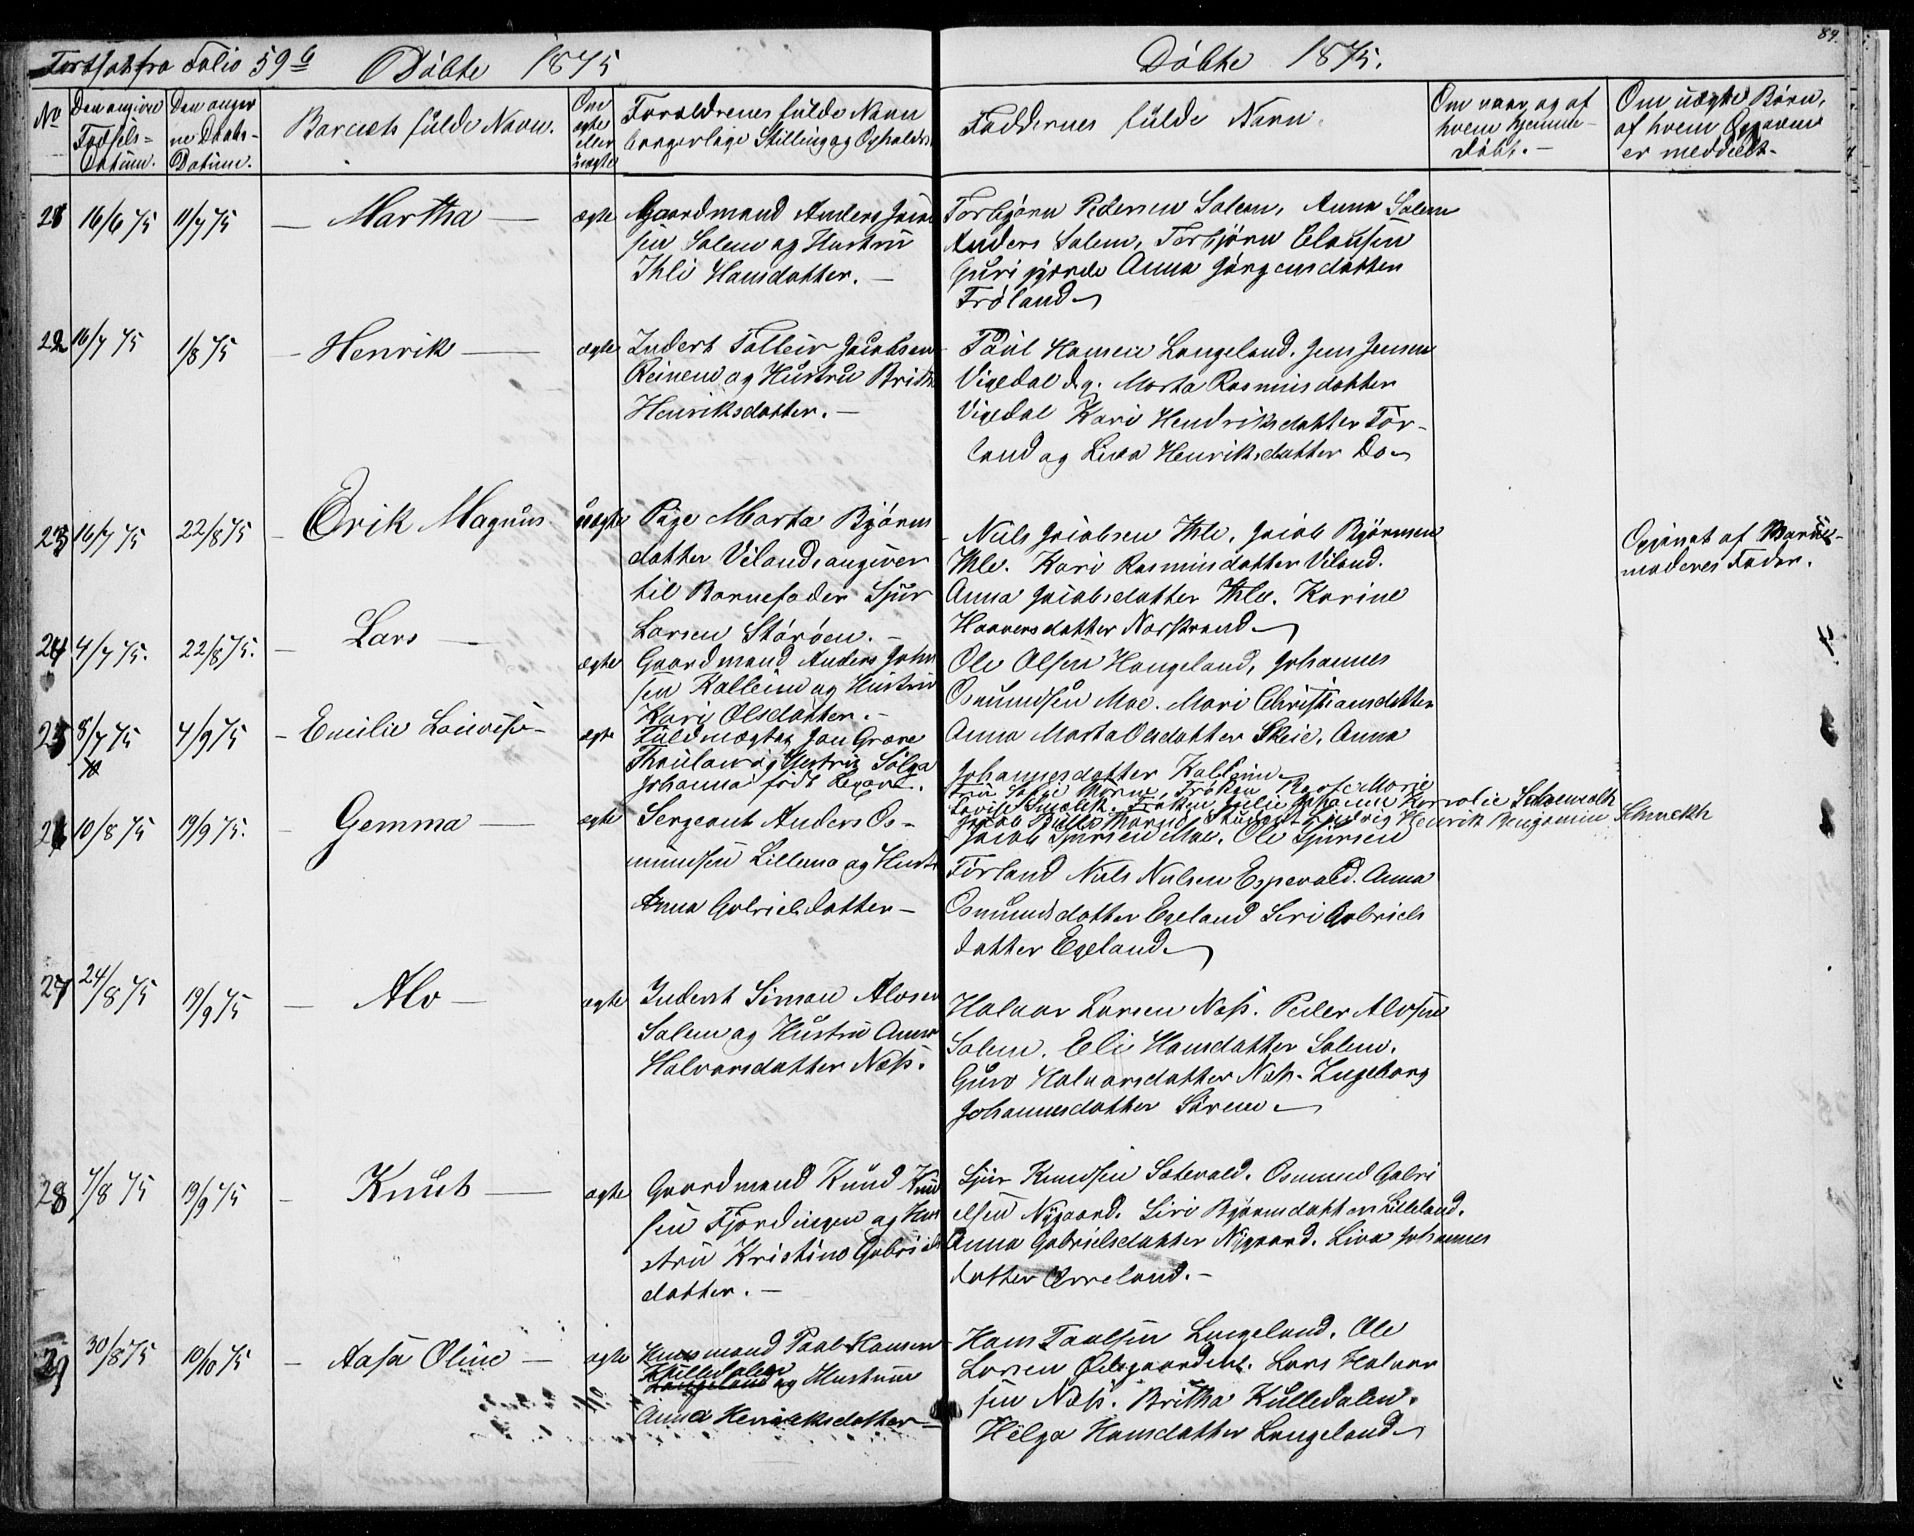 Fortsat fra Folio 59 b Döbte 1875
Döbte 1875.
89.
No
Den angivne Fødsels-Datum.
Den angivne Daabs-Datum.
Barnets fulde Navn.
Om ægte eller uægte
Forældrenes fulde Navn borgerlige Stilling og Ophold
Faddernes fulde Navn.
Om naar og af hvem hjemme-döbt. -
Om uægte Börn, af hvem Opgaven er meddelt -
21 16/6 75 11/7 75 - Martha - ægte
Gaardmand Anders Jacob
sen Salem og Hustru
Ihli Hansdatter. -
Torbjørn Pedersen Salem, Anna Salem
Anders Salem, Torbjörn Clausen
Guri Anna Jörgensdatter
Fröland
22 16/7 75 1/8 75 - Henrik - ægte
Inderst Tolleiv Jacobsen
Reinem og Hustru Britha
Henriksdatter. -
Paul Hansen Langeland. Jens Jensen
Vigedal Marta Rasmusdatter
Vigedal Kari Hendriksdatter Tör-
land og Liva Henriksdatter Do
23 16/7 75 22/8 75 - Erik Magnus uægte
Pige Marta Bjørns
datter Viland, angiver
til Barnefader Sjur
Larsen Störöen. -
Nils Jacobsen Thle, Jacob Bjørnsen
Thle. Kari Rasmusdatter Viland.
Anna Jacobsdatter Thle. Karine
Haaversdatter Norstrand
Opgivet af Barne-
moderes Fader.
24 4/7 75. 22/8 75. - Lars - ægte
Gaardmand Anders John
sen Kalleim og Hustru
Kari Olsdatter. -
Ole Olsen Haugeland, Johannes
Osmundsen Moe. Mari Christiansdatter
Anna Marta Olsdatter Skeie, Anna
Johannesdatter Kalleim
25 8/7 75 4/9 75 - Emilie Lovise - ægte
Fuldmægtig Jan Greve
Thaulow og Hustru Sölga
Johanna født
Lovise Smelck. Fröken Julie Johanne Karolie Schmelck
Henrik Benjamin Schmelck
26 10/8 75 19/9 75. - Gemma - ægte
Sergeant Anders Os-
mundsen Lillemo og Hustr
Anna Gabrielsdatter -
Jacob Sjursen Moe. Ole Sjursen
Törland Niels Nielsen Espevold. Anna
Osmundsdatter Egeland Siri Gabriels
datter Egeland
27 24/8 75 19/9 75 - Alv - ægte
Inderst Simon Alvsen
Salem og Hustru Anna
Halvorsdatter Næss.
Halvor Larsen Næss. Peder Alvsen
Salem. Eli Hansdatter Salem.
Guro Halvorsdatter Næss. Ingeborg
Johannesdatter Sörem
28 7/8 75 19/9 75 - Knut - ægte
Gaardmand Knud Knud
sen Fjordingen og Hu
stru Kristine Gabriels
datter. -
Sjur Knudsen Sætevold. Osmund Gabri
elsen Nygaard. Siri Bjørnsdatter Lilleland.
Anna Gabrielsdatter Nygaard. Liva Johannes
datter Orreland. -
29 30/8 75 10/10 75 - Aasa Oline - ægte
Husmand Paul Hansen
Kulledalen
Langeland og Hustrue
Anna Henriksdatter -
Hans Paulsen Langeland. Ole
Larsen Ödegaardene. Lars Halvor
sen Næss. Britha Kulledalen.
Helga Hansdatter Langeland